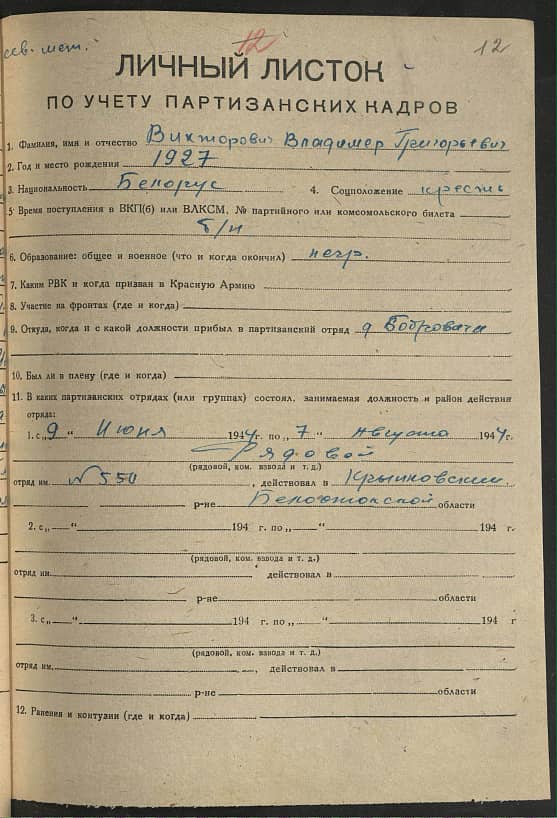 12 12
ЛИЧНЫЙ ЛИСТОК
ПО УЧЕТУ ПАРТИЗАНСКИХ КАДРОВ
1. Фамилия, имя и отчество Викторович Владимер Григорьевич
2. Год и место рождения 1927
3. Национальность Белорус 4. Соцположение крестьн
5. Время поступления в ВКП(б) или ВЛКСМ, № партийного или комсомольского билета
б/п
6. Образование: общее и военное (что и когда окончил) негр.
7. Каким РВК и когда призван в Красную Армию
8. Участие на фронтах (где и когда)
9. Откуда, когда и с какой должности прибыл в партизанский отряд д Бобровичи
10. Был ли в плену (где и когда)
11. В каких партизанских отрядах (или группах) состоял, занимаемая должность и район действия
отряда:
1. с „9" Июня 1944г. по „7" Августа 1944г.
Рядовой
(рядовой, ком. взвода и т. д.)
отряд им. №550, действовал в Крынковский
р-не Белостокской области
2. с „ " 194 г. по „ " 194 г.
(рядовой, ком. взвода и т. д.)
отряд им. действовал в
р-не области
3. с „ " 194 г. по „ " 194 г
(рядовой, ком. взвода и т. д.)
отряд им. , действовал в
р-не области
12. Ранения и контузии (где и когда)